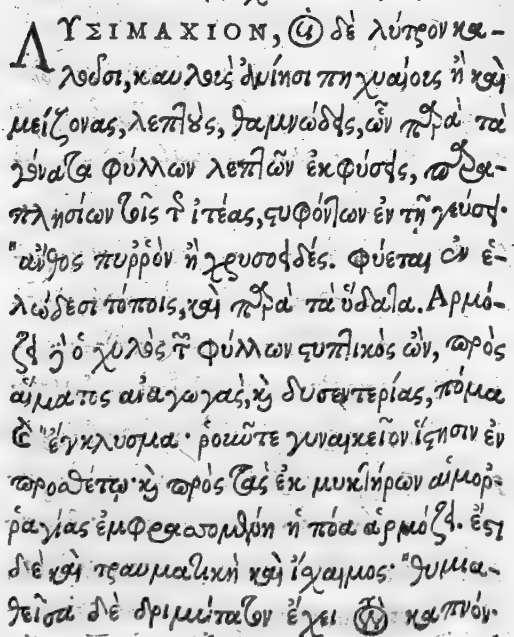 ΛΥΣΙΜΑΧΙΟΝ, οἱ δὲ λύτρον κα-
λοῦσι, καυλοὺς ἀνίησι πηχυαίους ἢ καὶ
μείζονας, λεπτοὺς, θαμνώδεις, ὧν παρὰ τὰ
γόνατα φύλλων λεπτῶν ἐκφύσεις, παρα-
πλησίων τοῖς τῆς ἰτέας, στυφόντων ἐν τῇ γεύσει·
ἄνθος πυῤῥὸν ἢ χρυσοειδές. φύεται ἐν ἑ-
λώδεσι τόποις, καὶ παρὰ τὰ ὕδατα. Αρμό-
ζει δὲ ὁ χυλὸς τῶν φύλλων στυπτικὸς ὢν, πρὸς
αἵματος ἀναγωγὰς, καὶ δυσεντερίας, πόμα
καὶ ἔγκλυσμα· ῥοῦν τε γυναικεῖον ἵστησιν ἐν
προσθέτῳ· καὶ πρὸς τὰς ἐκ μυκτήρων αἱμορ-
ῥαγίας ἐμφρασσομένη ἡ πόα ἁρμόζει. ἔστι
δὲ καὶ τραυματικὴ καὶ ἴσχαιμος· θυμια-
θεῖσα δὲ δριμύτατον ἔχει τὸν καπνόν·